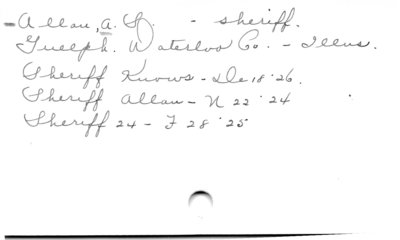 Allan, A. S. - sheriff.
Guelph. Waterloo Co. - Illus.
Sheriff Knows - De 18 '26.
Sheriff Allan - N 22 '24
Sheriff 24 - F 28 '25